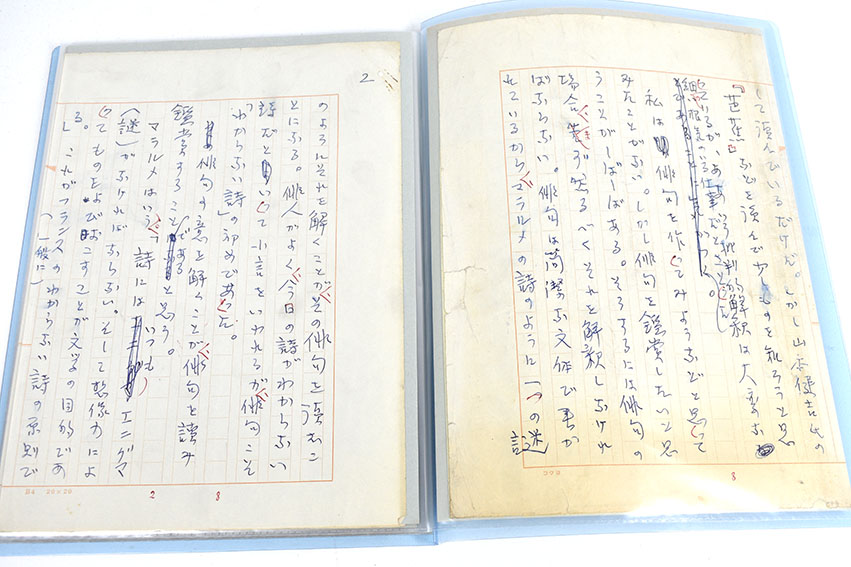 して読んでいるだけだ。しかし山本健吉氏の
『芭蕉』などを読んで少しものを知ろうと思
っているが、あゝいう批判的解釈は大変な
仕事だと
私は俳句を作ってみようなどと思って
みたことがない。しかし俳句を鑑賞したいと思
うことがしばしばある。そうするには俳句の
場合必ず然るべくそれを解釈しなければ
ばならない。俳句は簡潔な文体で書か
れているからマラルメの詩のように一つの謎
2
のようにそれを解くことがその俳句を読むこ
とになる。俳人がよく今日の詩がわからない
詩だといって小言をいわれるが俳句こそ
「わからない詩」の初めであった。
俳句の意を解くことが俳句を読み
鑑賞することであると思う。
マラルメはいう「詩にはいつもエニグマ
(謎)がなければならない。そして想像力によ
ってものをよびおこすことが文学の目的であ
る。」これがフランスのわからない詩の原則で
(一般に)
B4 20×20
2
8
8